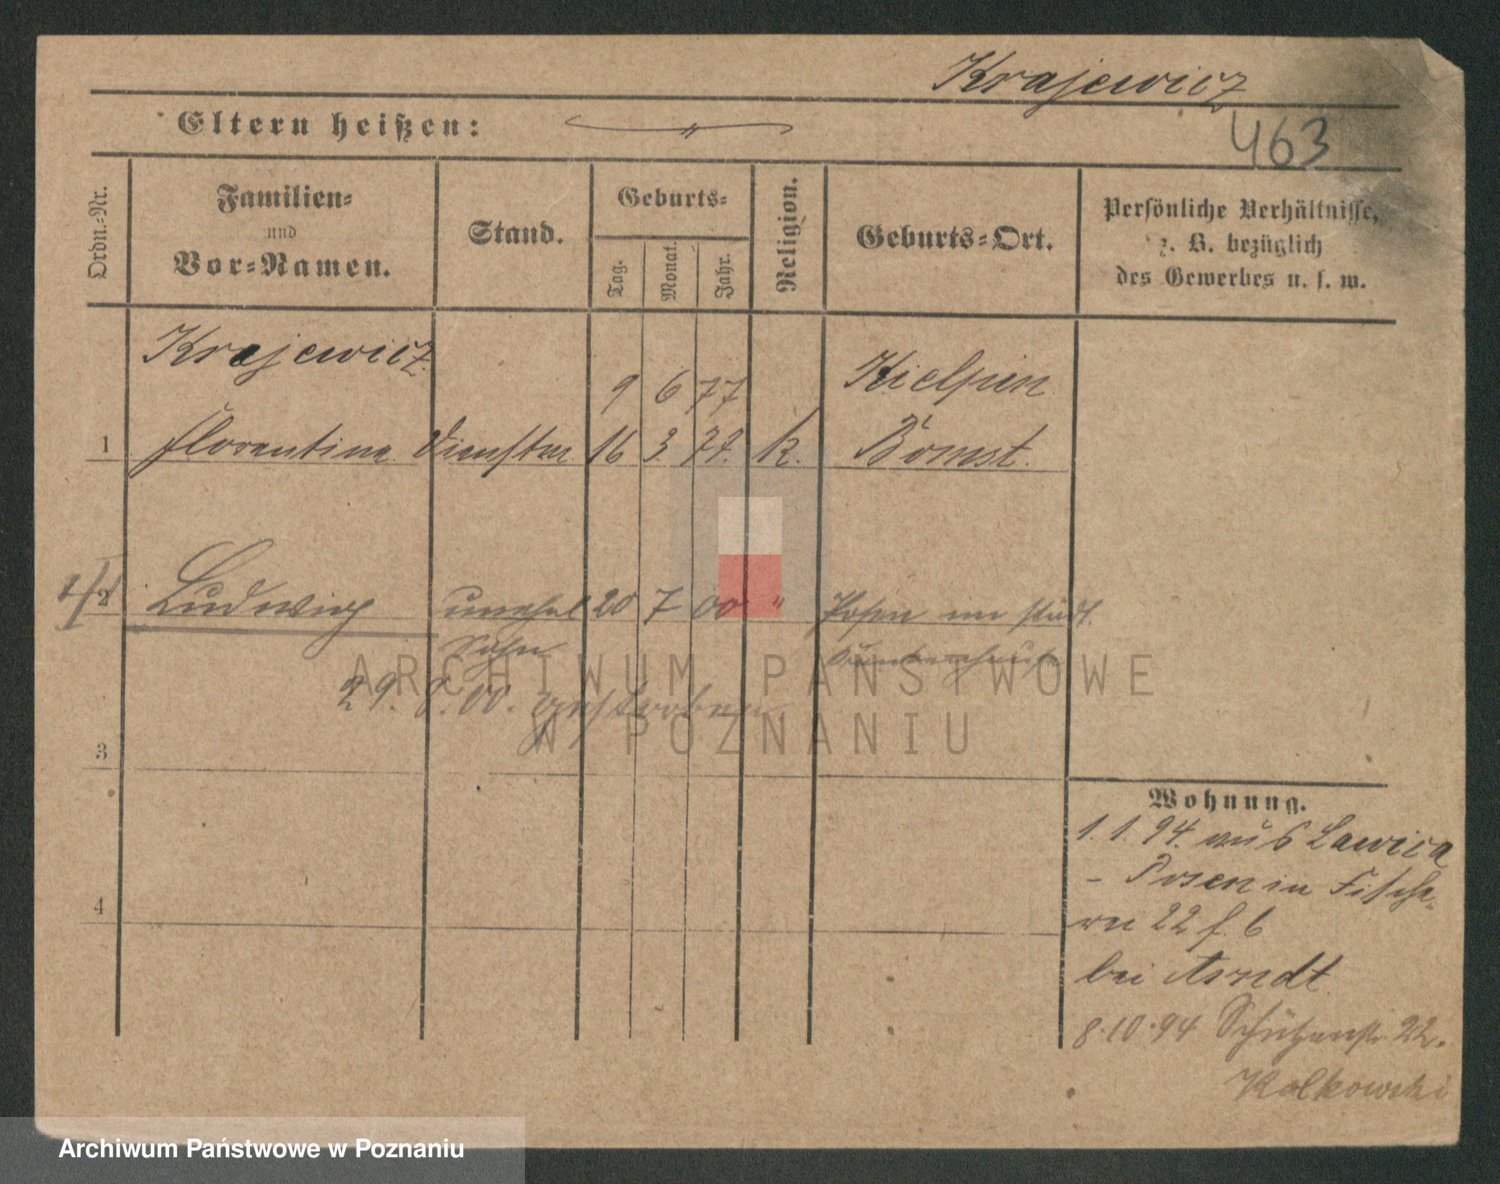 Krajewicz
463
Eltern heißen:
Ordn.-Nr.
Familien-
und
Vor-Namen.
Stand.
Geburts-
Tag.
Monat.
Jahr.
Religion.
Geburts-Ort.
Persönliche Verhältnisse,
z. B. bezüglich
des Gewerbes u. s. w.
Krajewicz
9 6 77
Kielpin
1 Florentine Dienstm. 16 3 77. K. Bomst.
2 Ludwig unehel 20 7 00 " Posen im städt.
Sohn
29. 8. 00. gestorben
3
4
Wohnung.
1. 1. 94. aus Lawica
- Posen in Fische-
rei 22 f. 6
bei Arndt
8.10.94 Schützenstr. 22.
Kalkowski
ARCHIWUM PAŃSTWOWE
W POZNANIU
Archiwum Państwowe w Poznaniu